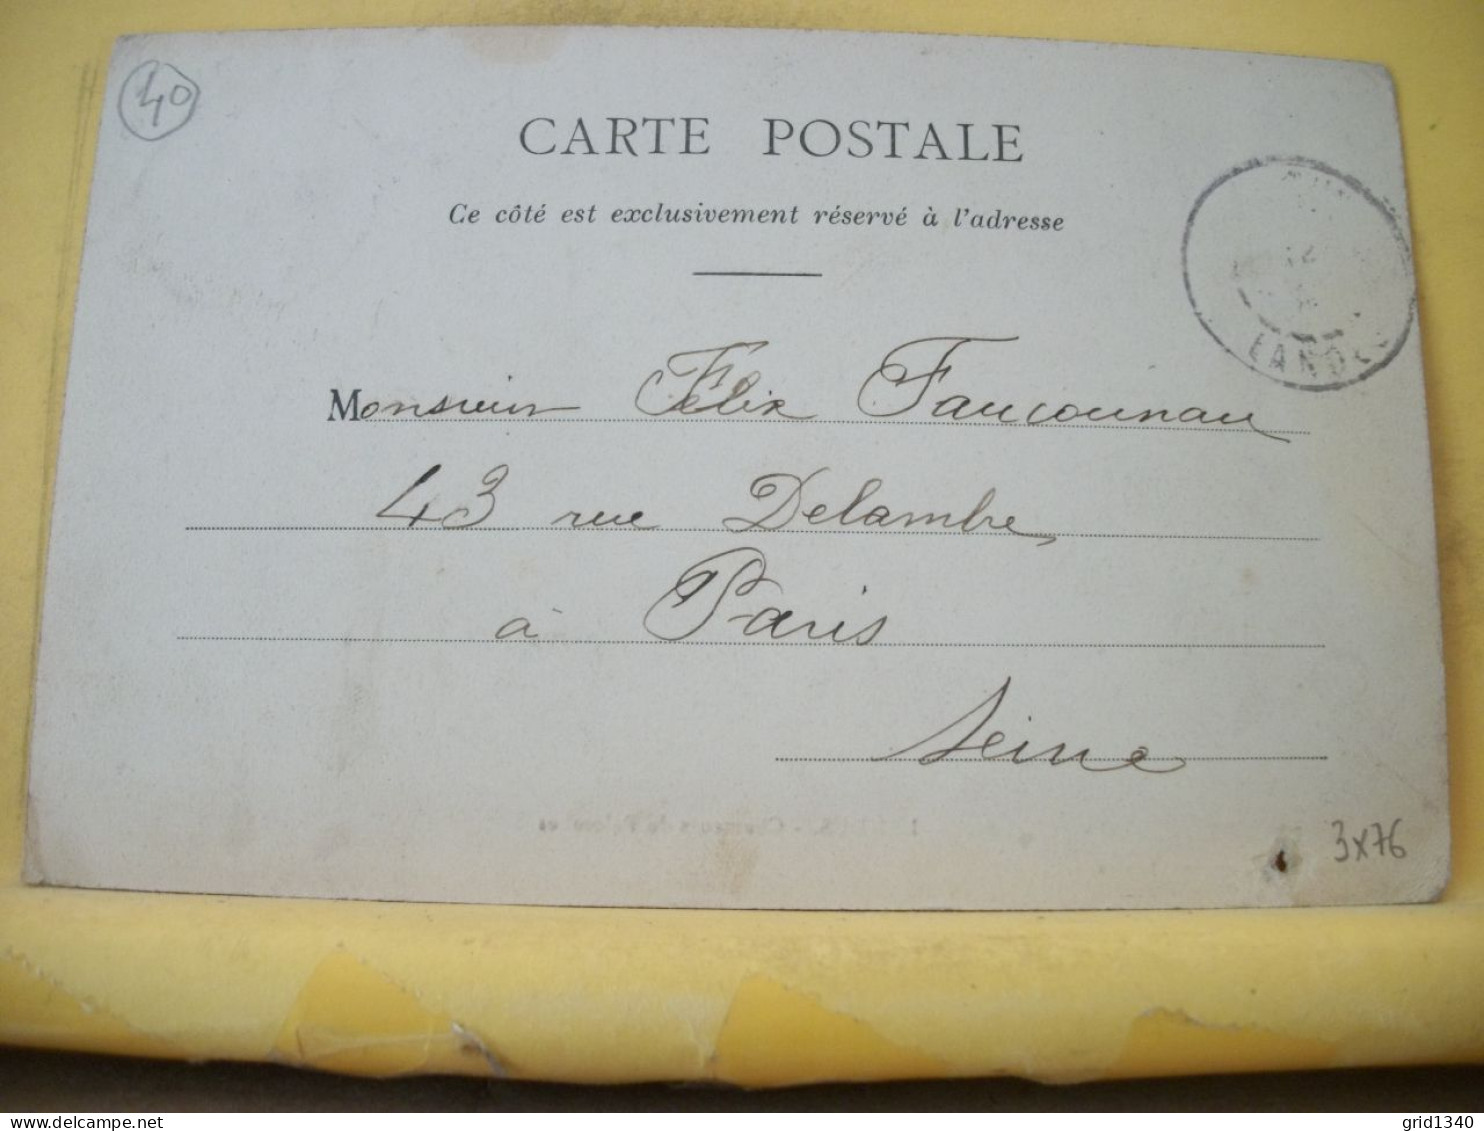 40
CARTE POSTALE
Ce côté est exclusivement réservé à l'adresse
LANDES
Monsieur Félix Faucounau
43 rue Delambre,
à Paris
Seine
3x76
grid1340